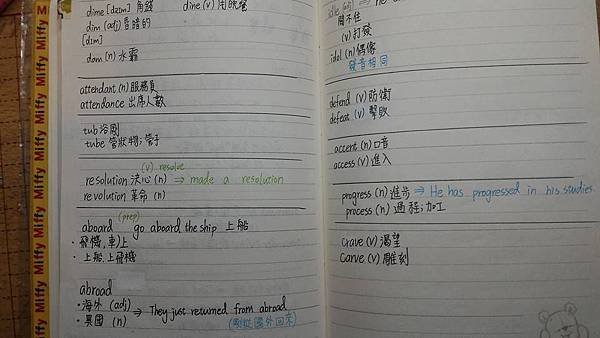 dime [daɪm] 角錢 dine (v) 用晚餐
dim (adj) 昏暗的
[dɪm]
dam (n) 水霸
attendant (n) 服務員
attendance 出席人數
tub 浴缸
tube 管狀物;管子
(v) resolve
resolution 決心 (n) ⇒ made a resolution
revolution 革命 (n)
(prep)
aboard go aboard the ship 上船
・飛機,車)上
・上船,上飛機
abroad
・海外 (adj) ⇒ They just returned from abroad
・異國 (n) (剛從國外回來)
idle (adj)
閒不住
(v) 打發
idol (n) 偶像
發音相同
defend (v) 防衛
defeat (v) 擊敗
accent (n) 口音
access (v) 進入
progress (n) 進步 ⇒ He has progressed in his studies
process (n) 過程;加工
crave (v) 渴望
carve (v) 雕刻
Miffy Miffy Miffy Miffy Miffy Miffy Miffy Miffy